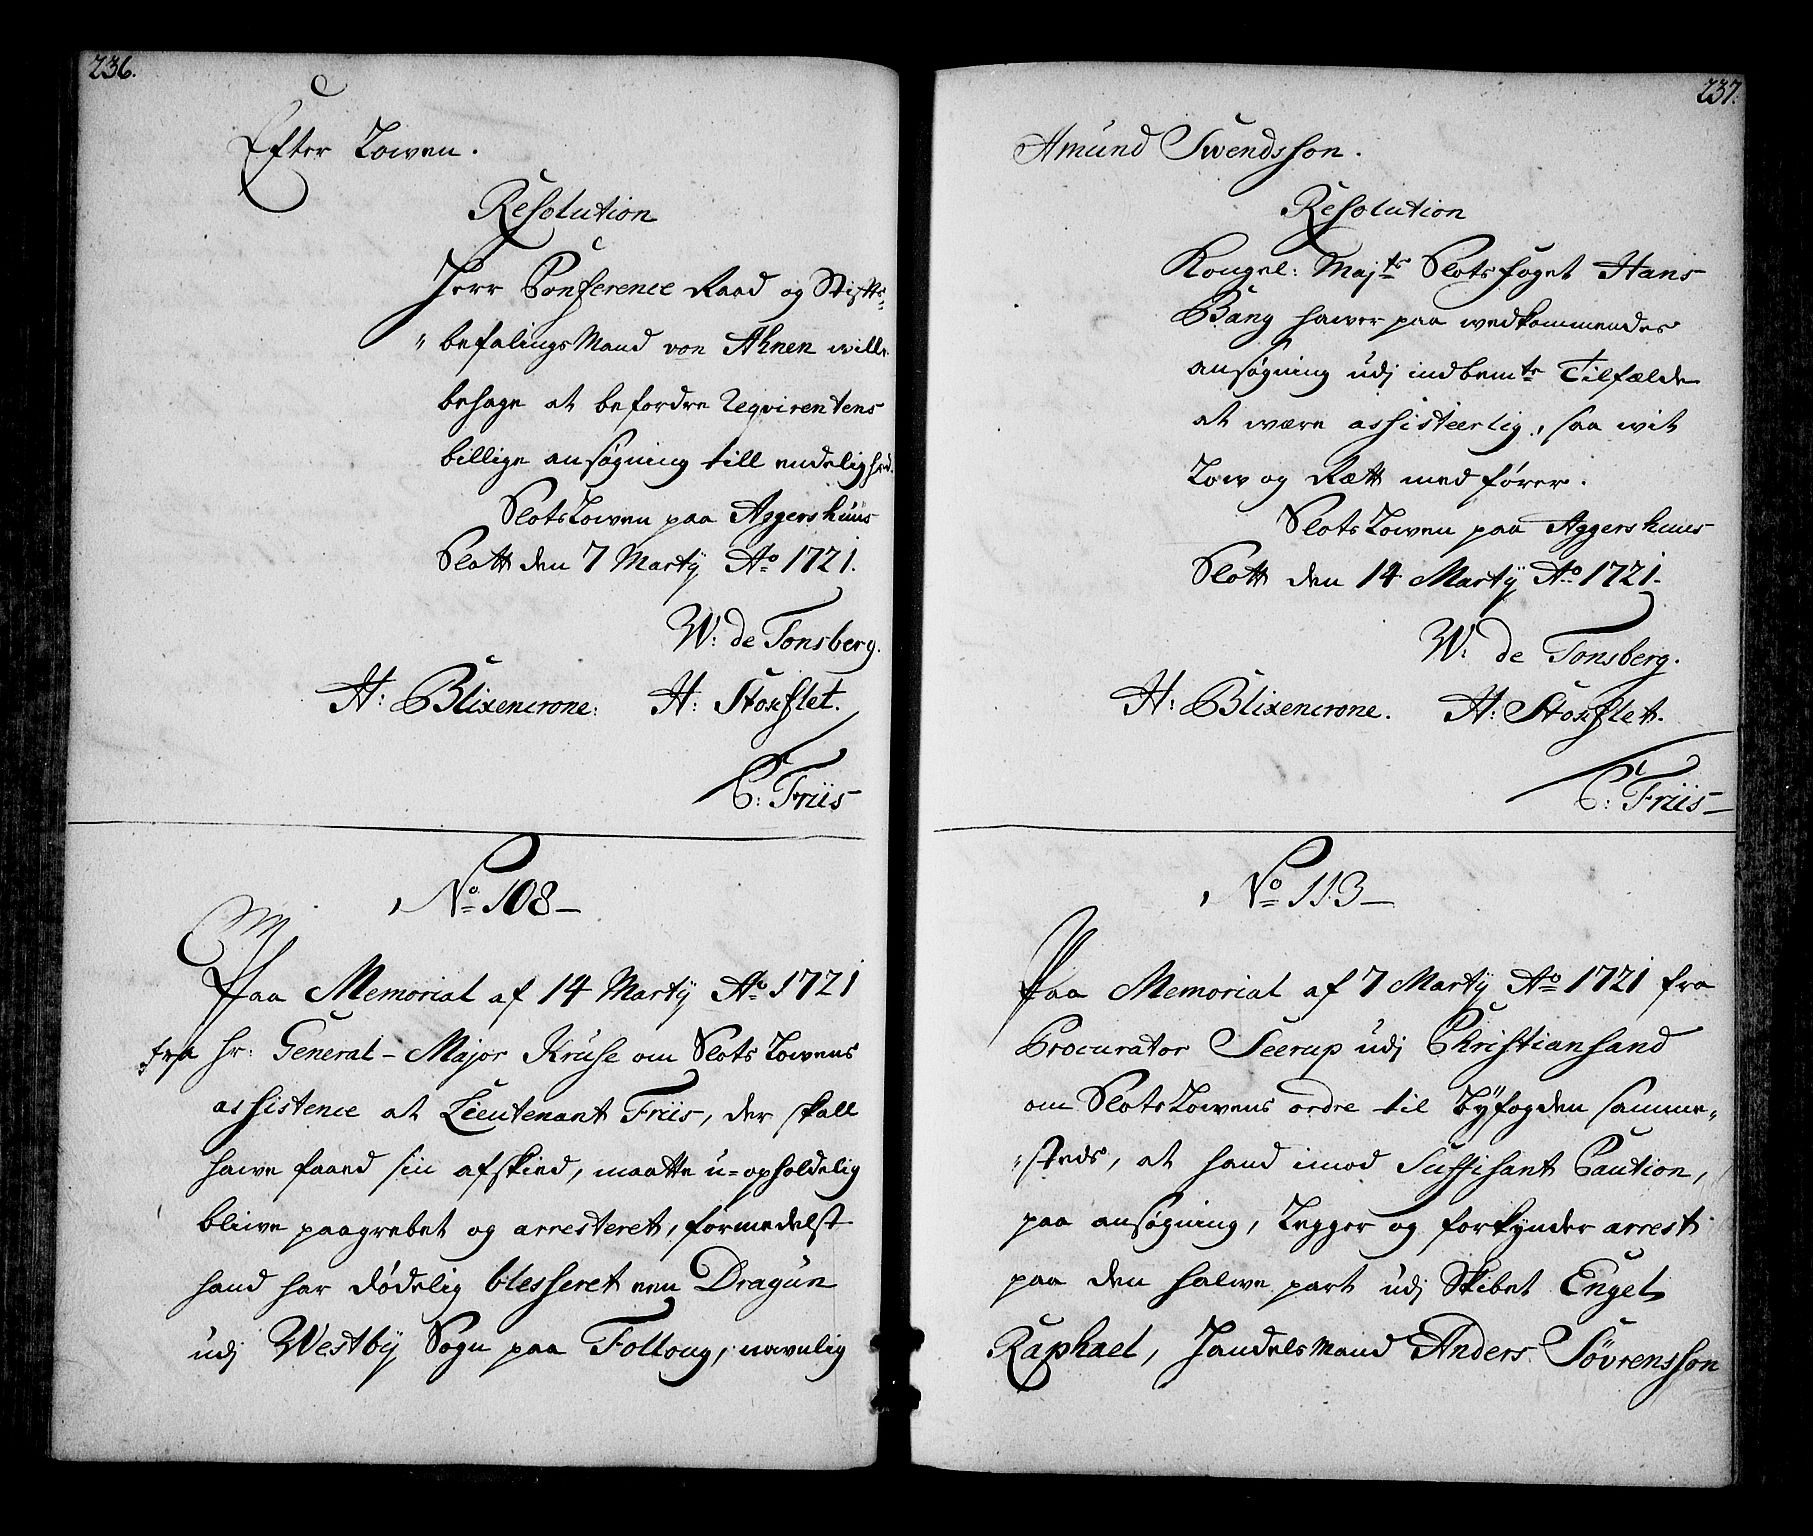 236.
Efter Lowen.
Resolution
Herr Conference Raad og Stifts-
"befalings Mand von Ahnen wille
behage at befordre Reqvirentens
billige ansøgning till endelighed.
Slots Lowen paa Aggershuus
Slott den 7 Martÿ Ao 1721.
W: de Tonsberg.
H: Blixencrone: H: Stoxflet.
C: Friis
No 108
Paa Memorial af 14 Martÿ Ao 1721
fra hr: General-Major Kruse om Slots Lowens
assistence at Lieutenant Friis, der skall
hawe faaed sin afskied, maatte u-opholdelig
bliwe paagrebet og arresteret, formedelst
hand har dödelig blesseret een Dragun
udj Westbÿ Sogn paa Folloug, nawnlig
237.
Amund Swendsson.
Resolution
Kongel: Majts Slotsfoget Hans
Bang hawer paa wedkommendes
ansøgning udj indbemte Tilfælde
at wære assisteerlig, saa wit
Low og Rætt medfører.
Slots Lowen paa Aggershuus
Slott den 14 Martÿ Ao 1721.
W: de Tonsberg.
H: Blixencrone. H: Stoxflet.
C: Friis
No 113
Paa Memorial af 7 Martÿ Ao 1721 fra
Procurator Seerup udj Christiansand
om Slots Lowens ordre til Bÿfogden samme-
"steds, at hand imod Suffisant Caution,
paa ansøgning, Legger og forkynder arrest
paa den halwe part udj Skibet Engel
Raphael, Handels Mand Anders Søvrensson